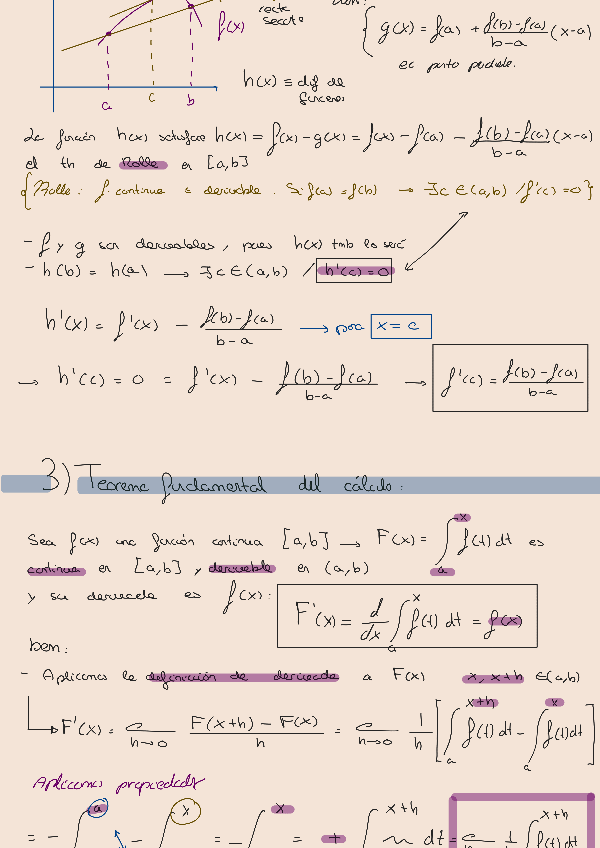 recta
secante
f(x)
g(x) = f(a) + \frac{f(b)-f(a)}{b-a} (x-a)
a c b
h(x) ≡ dif de
funciones
La función h(x) satisface h(x) = f(x) - g(x) = f(x) - f(a) - \frac{f(b)-f(a)}{b-a} (x-a)
el th de Rolle en [a,b]
{Rolle: f continua e derivable. Si f(a) = f(b) → ∃c ∈ (a,b) / f'(c) = 0}
- f y g son derivables, pues h(x) tmb lo será
- h(b) = h(a) → ∃c ∈ (a,b) / h'(c) = 0
h'(x) = f'(x) - \frac{f(b)-f(a)}{b-a} → para x = c
→ h'(c) = 0 = f'(x) - \frac{f(b)-f(a)}{b-a} → f'(c) = \frac{f(b)-f(a)}{b-a}
3) Teorema fundamental del cálculo:
Sea f(x) una función continua [a,b] → F(x) = ∫_a^x f(t) dt es
continua en [a,b] y derivable en (a,b)
y su derivada es f(x): F'(x) = \frac{d}{dx} ∫_a^x f(t) dt = f(x)
dem:
- Aplicamos la definición de derivada a F(x) x, x+h ∈ (a,b)
F'(x) = lim_{h→0} \frac{F(x+h) - F(x)}{h} = lim_{h→0} \frac{1}{h} [∫_a^{x+h} f(t) dt - ∫_a^x f(t) dt]
Aplicamos propiedades
= - ∫^a - ∫^x = - ∫^x = + ∫^{x+h} dt = lim \frac{1}{h} ∫^{x+h} f(t) dt